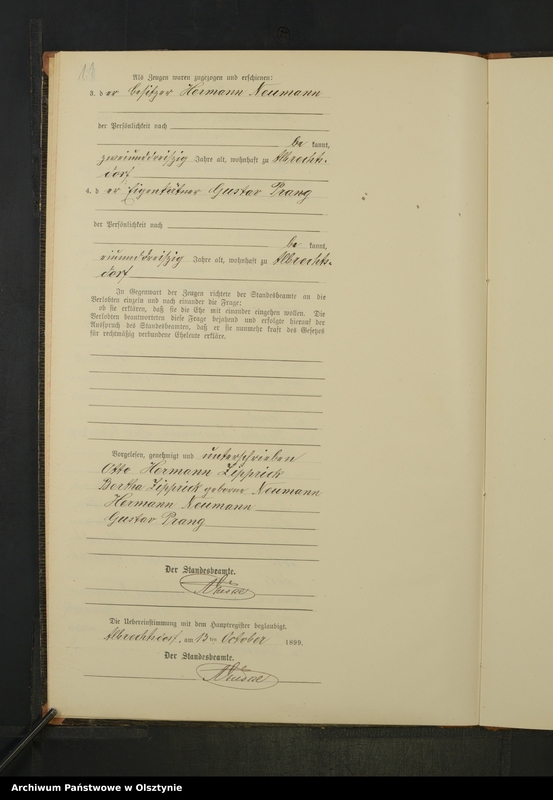 18
Als Zeugen waren zugezogen und erschienen:
3. der Besitzer Hermann Neumann
der Persönlichkeit nach
be kannt,
zweiunddreißig Jahre alt, wohnhaft zu Albrechts-
dorf
4. der Eigenkätner Gustav Prang
der Persönlichkeit nach
be kannt,
einunddreißig Jahre alt, wohnhaft zu Albrechts-
dorf
In Gegenwart der Zeugen richtete der Standesbeamte an die
Verlobten einzeln und nach einander die Frage:
ob sie erklären, daß sie die Ehe mit einander eingehen wollen. Die
Verlobten beantworteten diese Frage bejahend und erfolgte hierauf der
Ausspruch des Standesbeamten, daß er sie nunmehr kraft des Gesetzes
für rechtmäßig verbundene Eheleute erkläre.
Vorgelesen, genehmigt und unterschrieben
Otto Hermann Zipprick
Bertha Zipprick geborne Neumann
Hermann Neumann
Gustav Prang
Der Standesbeamte.
Die Uebereinstimmung mit dem Hauptregister beglaubigt.
Albrechtsdorf, am 13ten October 1899.
Der Standesbeamte.
Archiwum Państwowe w Olsztynie